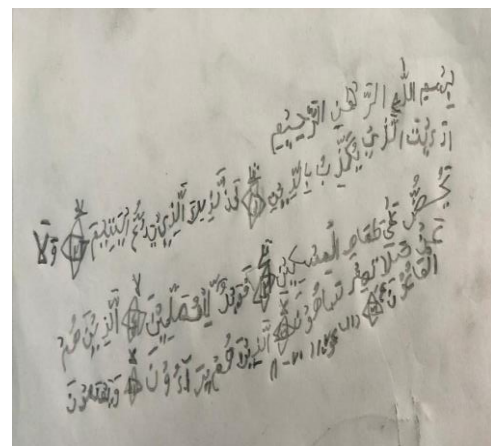 بِسْمِ اللّٰهِ الرَّحْمٰنِ الرَّحِيْمِ
اَرَءَيْتَ الَّذِيْ يُكَذِّبُ بِالدِّيْنِ فَذٰلِكَ الَّذِيْ يَدُعُّ الْيَتِيْمَ وَلَا
يَحُضُّ عَلٰى طَعَامِ الْمِسْكِيْنِ فَوَيْلٌ لِّلْمُصَلِّيْنَ الَّذِيْنَ هُمْ
عَنْ صَلَاتِهِمْ سَاهُوْنَ الَّذِيْنَ هُمْ يُرَآءُوْنَ وَيَمْنَعُوْنَ
الْمَاعُوْنَ